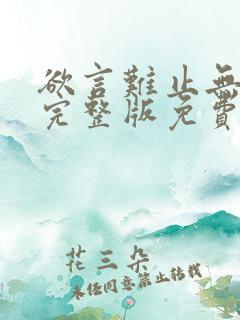 欲言難止無
完整版免費
花三朵
未经同意禁止转载